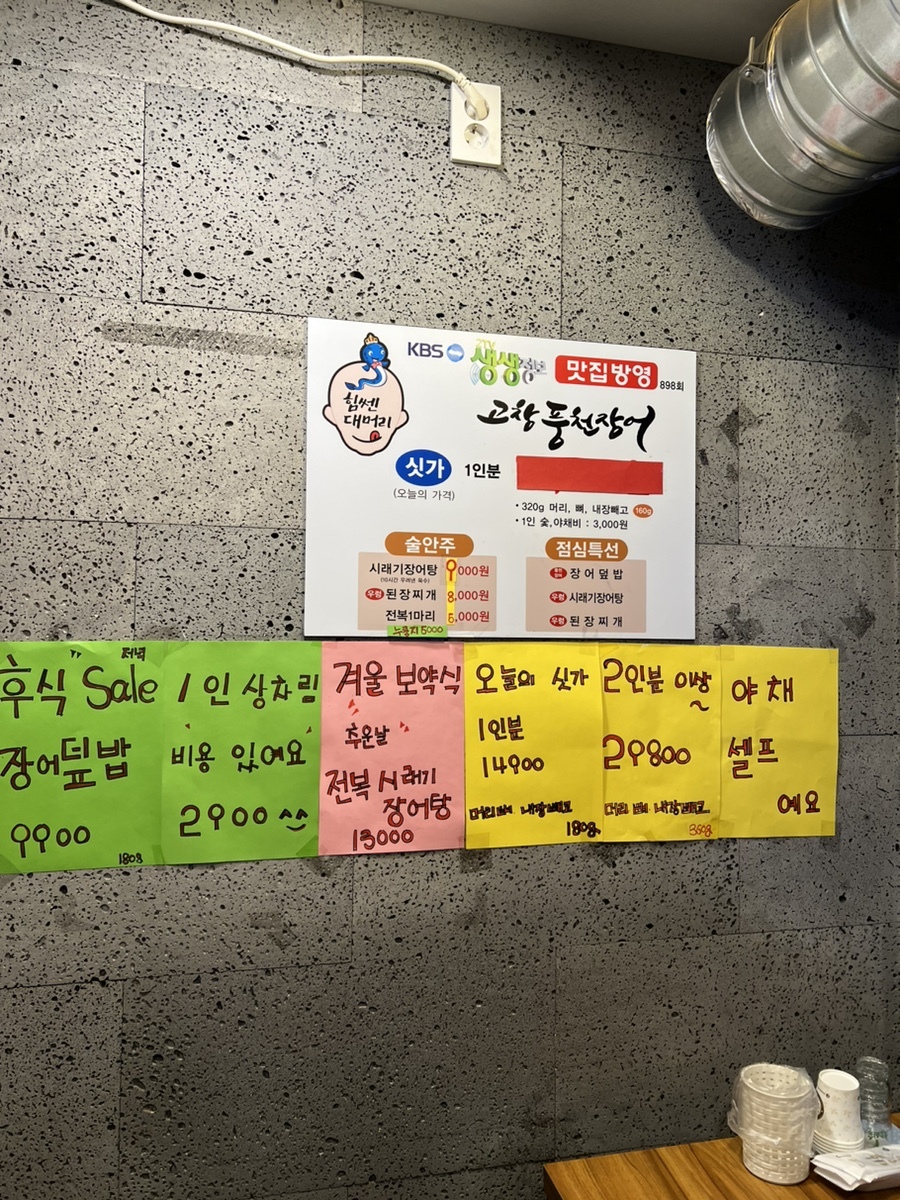 KBS
2TV
생생정보
맛집방영
898회
힘쎈
대머리
고창 풍천장어
싯가
1인분
(오늘의 가격)
• 320g 머리, 뼈, 내장빼고 160g
• 1인 숯,야채비 : 3,000원
술안주
시래기장어탕 9,000원
(10시간 우려낸 육수)
우렁 된장찌개 8,000원
전복1마리 5,000원
누룽지 5000
점심특선
장어덮밥
시래기장어탕
우렁 된장찌개
후식 저녁 Sale
장어덮밥
9900
180g
1인 상차림
비용 있어요
2900 ^^
겨울 보약식
추운날
전복 시래기
장어탕
13000
오늘의 싯가
1인분
14900
머리 뼈 내장빼고
180g
2인분 이상~
29800
머리 뼈 내장빼고
360g
야채
셀프
예요